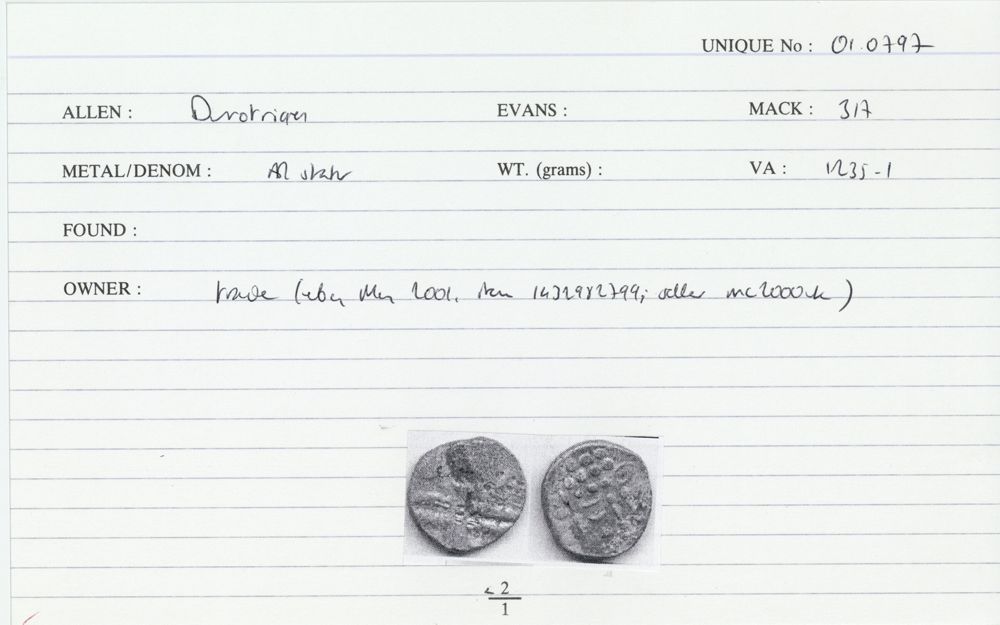 UNIQUE No : 01.0797
ALLEN : Durotrigan EVANS : MACK : 317
METAL/DENOM : AR stater WT. (grams) : VA : 1235-1
FOUND :
OWNER : trade (ebay May 2001, item 1432982799; seller mc2000uk)
2
1